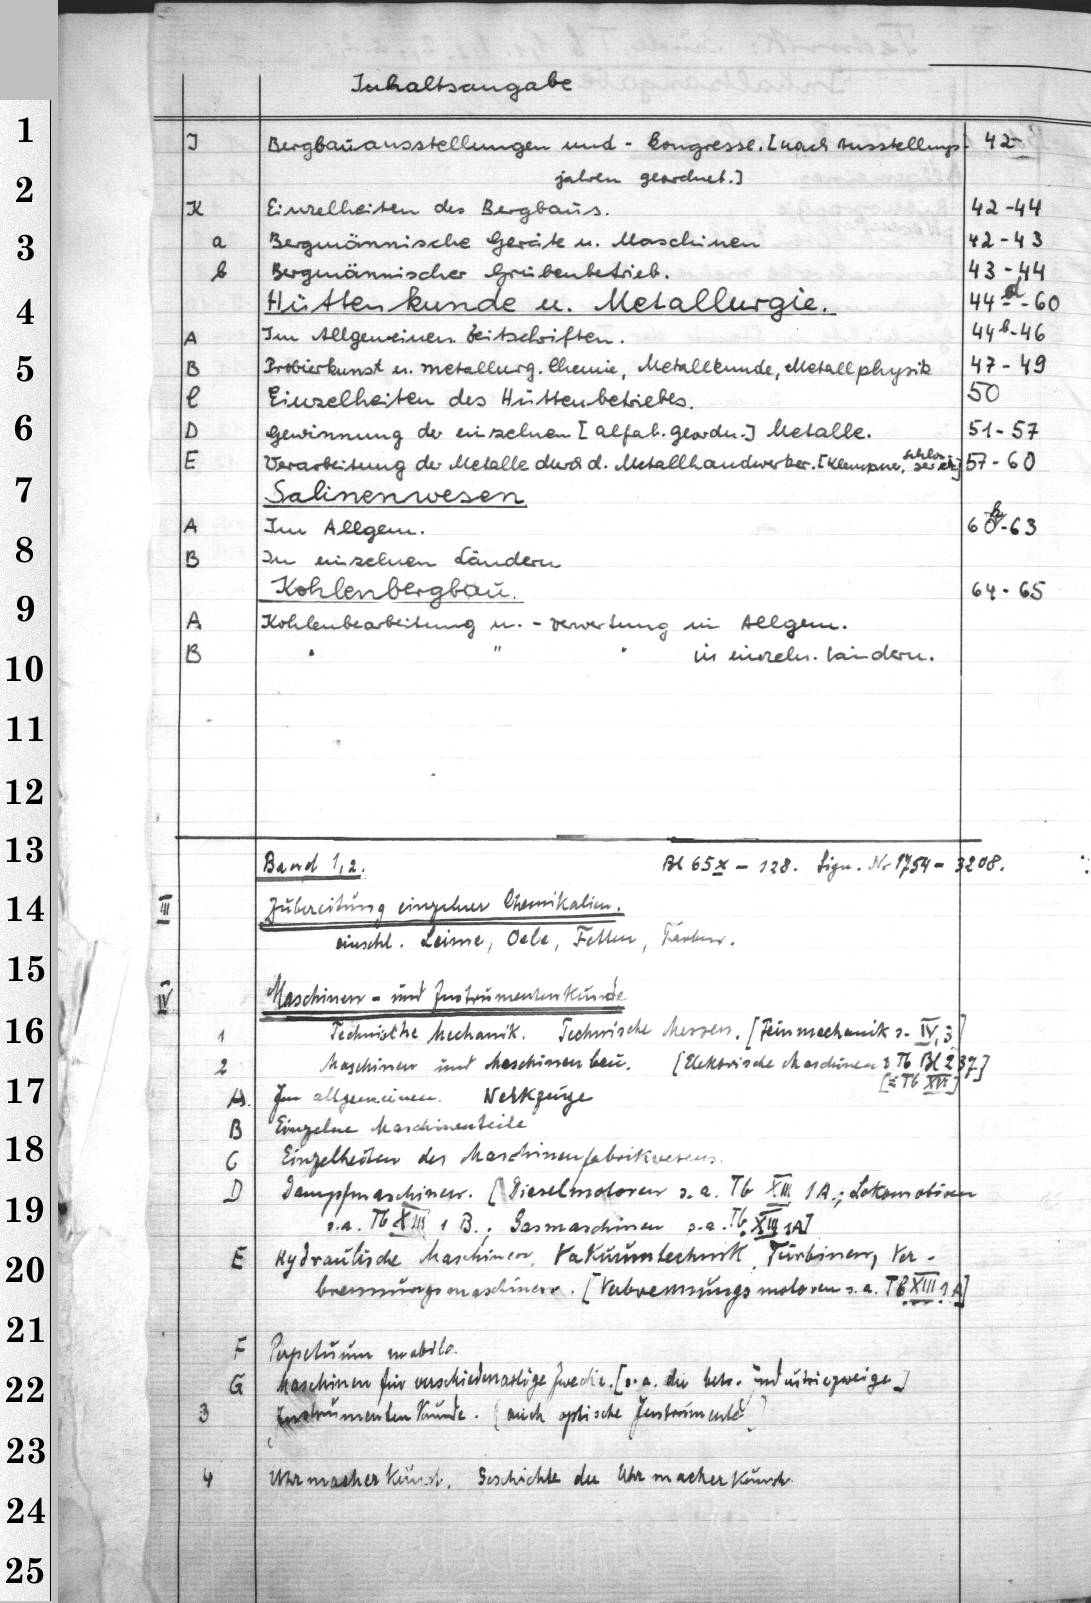 Inhaltsangabe
1
J Bergbauausstellungen und - Kongresse. [nach Ausstellungs- 42-
jahren geordnet.]
2
K Einzelheiten des Bergbaus. 42-44
3
a Bergmännische Geräte u. Maschinen 42-43
b Bergmännischer Grubenbetrieb. 43-44
4
Hüttenkunde u. Metallurgie. 44a-60
A Im Allgemeinen Zeitschriften. 44b-46
5
B Probierkunst u. metallurg. Chemie, Metallkunde, Metallphysik 47-49
C Einzelheiten des Hüttenbetriebes. 50
6
D Gewinnung der einzelnen [alfab. geordn.] Metalle. 51-57
E Verarbeitung der Metalle durch d. Metallhandwerker. [Klempner, 57-60
7
Salinenwesen
A Im Allgem. 60b-63
8
B In einzelnen Ländern
Kohlenbergbau. 64-65
9
A Kohlenbearbeitung u. - verwertung im Allgem.
10
B " " " in einzeln. Ländern.
11
12
13
Band 1,2. Bl 65x - 128. Sign. Nr 1754 - 3208.
14
III Zubereitung einzelner Chemikalien.
einschl. Leime, Oele, Fetten, Farben.
15
IV Maschinen - und Instrumentenkunde
16
1 Technische Mechanik. Technisches Messen. [Feinmechanik s. IV, 3]
2 Maschinen und Maschinenbau. [Elektrische Maschinen s Tb Bl 237]
[= Tb XVI]
17
A. Im allgemeinen. Werkzeuge
B Einzelne Maschinenteile
18
C Einzelheiten des Maschinenfabrikwesens.
D Dampfmaschinen. [Dieselmotoren s.a. Tb XIII 1A.; Lokomotiven
19
s.a. Tb XIII 1 B.; Gasmaschinen s.a. Tb XIII 1A]
20
E Hydraulische Maschinen, Vakuumtechnik, Turbinen, Ver-
brennungsmaschinen. [Verbrennungsmotoren s.a. Tb XIII 1A]
21
F Perpetuum mobile.
22
G Maschinen für verschiedenartige Zwecke. [s.a. die betr. Industriezweige]
3 Instrumentenkunde. [auch optische Instrumente]
23
4 Uhrmacherkunst. Geschichte der Uhrmacherkunst.
24
25